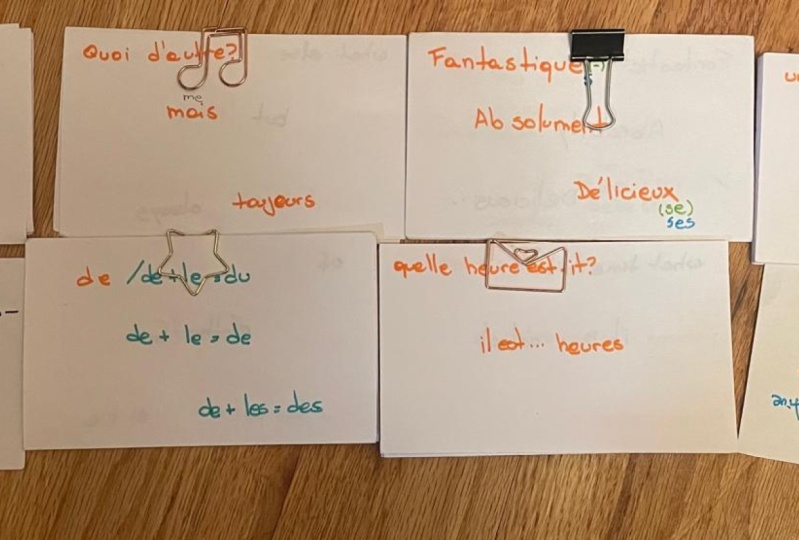 Quoi d'autre?
me
mais
toujours
Fantastique
s
Absolument
Délicieux
(se)
ses
de /de+le=du
de + le = de
de + les = des
quelle heure est-it?
il est... heures